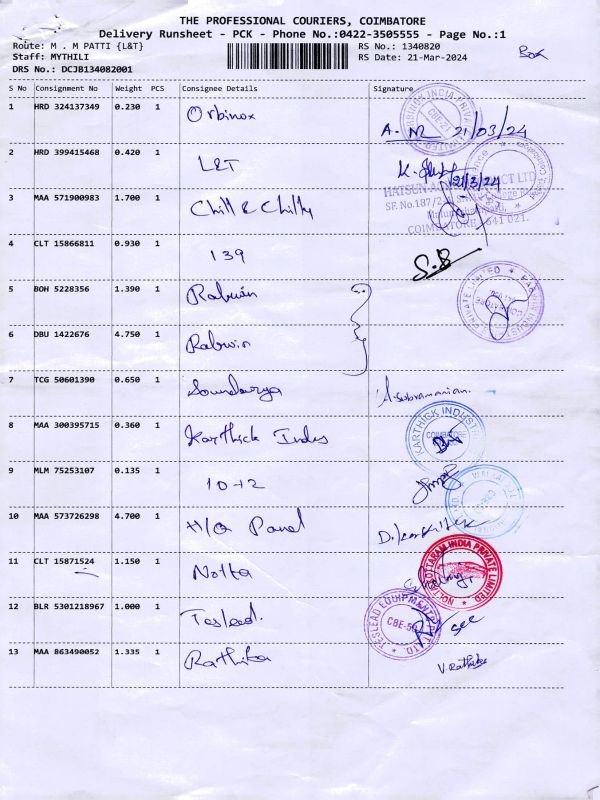 THE PROFESSIONAL COURIERS, COIMBATORE
Delivery Runsheet - PCK - Phone No.:0422-3505555 - Page No.:1
Route: M . M PATTI {L&T} RS No.: 1340820
Staff: MYTHILI RS Date: 21-Mar-2024 Box
DRS No.: DCJB134082001
S No Consignment No Weight PCS Consignee Details Signature
1 HRD 324137349 0.230 1 Orbinox A. M 21/03/24
2 HRD 399415468 0.420 1 L&T 21/3/24
3 MAA 571900983 1.700 1 Chill & Chilly
COIMBATORE - 641 021.
4 CLT 15866811 0.930 1 139 S.B
5 BOH 5228356 1.390 1 Rabwin
6 DBU 1422676 4.750 1 Rabwin
7 TCG 50601390 0.650 1 Soundarya A.Subramanian.
8 MAA 300395715 0.360 1 Karthick Indus KARTHICK INDUSTR
COIMBATORE
9 MLM 75253107 0.135 1 10+2
10 MAA 573726298 4.700 1 H/Q Panel
11 CLT 15871524 1.150 1 Notta NOLTA KOTTARAM INDIA PRIVATE LIMITED
12 BLR 5301218967 1.000 1 Teslead. TESLEAD EQUIPMENTS
13 MAA 863490052 1.335 1 Rathika V. Rathika